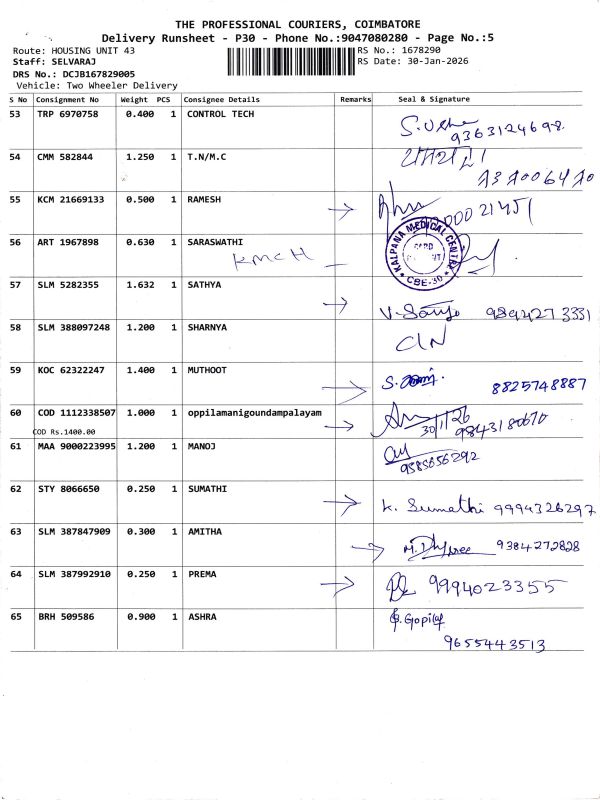 THE PROFESSIONAL COURIERS, COIMBATORE
Delivery Runsheet - P30 - Phone No.:9047080280 - Page No.:5
Route: HOUSING UNIT 43 RS No.: 1678290
Staff: SELVARAJ RS Date: 30-Jan-2026
DRS No.: DCJB167829005
Vehicle: Two Wheeler Delivery
S No Consignment No Weight PCS Consignee Details Remarks Seal & Signature
53 TRP 6970758 0.400 1 CONTROL TECH
9363124698
54 CMM 582844 1.250 1 T.N/M.C
55 KCM 21669133 0.500 1 RAMESH
56 ART 1967898 0.630 1 SARASWATHI
KMCH KALPANA MEDICAL CENTRE CBE-30
57 SLM 5282355 1.632 1 SATHYA
9894273331
58 SLM 388097248 1.200 1 SHARNYA
59 KOC 62322247 1.400 1 MUTHOOT
8825748887
60 COD 1112338507 1.000 1 oppilamanigoundampalayam
30/1/26 9843180670
COD Rs.1400.00
61 MAA 9000223995 1.200 1 MANOJ
62 STY 8066650 0.250 1 SUMATHI
K. Sumathi 9994326297
63 SLM 387847909 0.300 1 AMITHA
9384272828
64 SLM 387992910 0.250 1 PREMA
9994023355
65 BRH 509586 0.900 1 ASHRA
9655443513